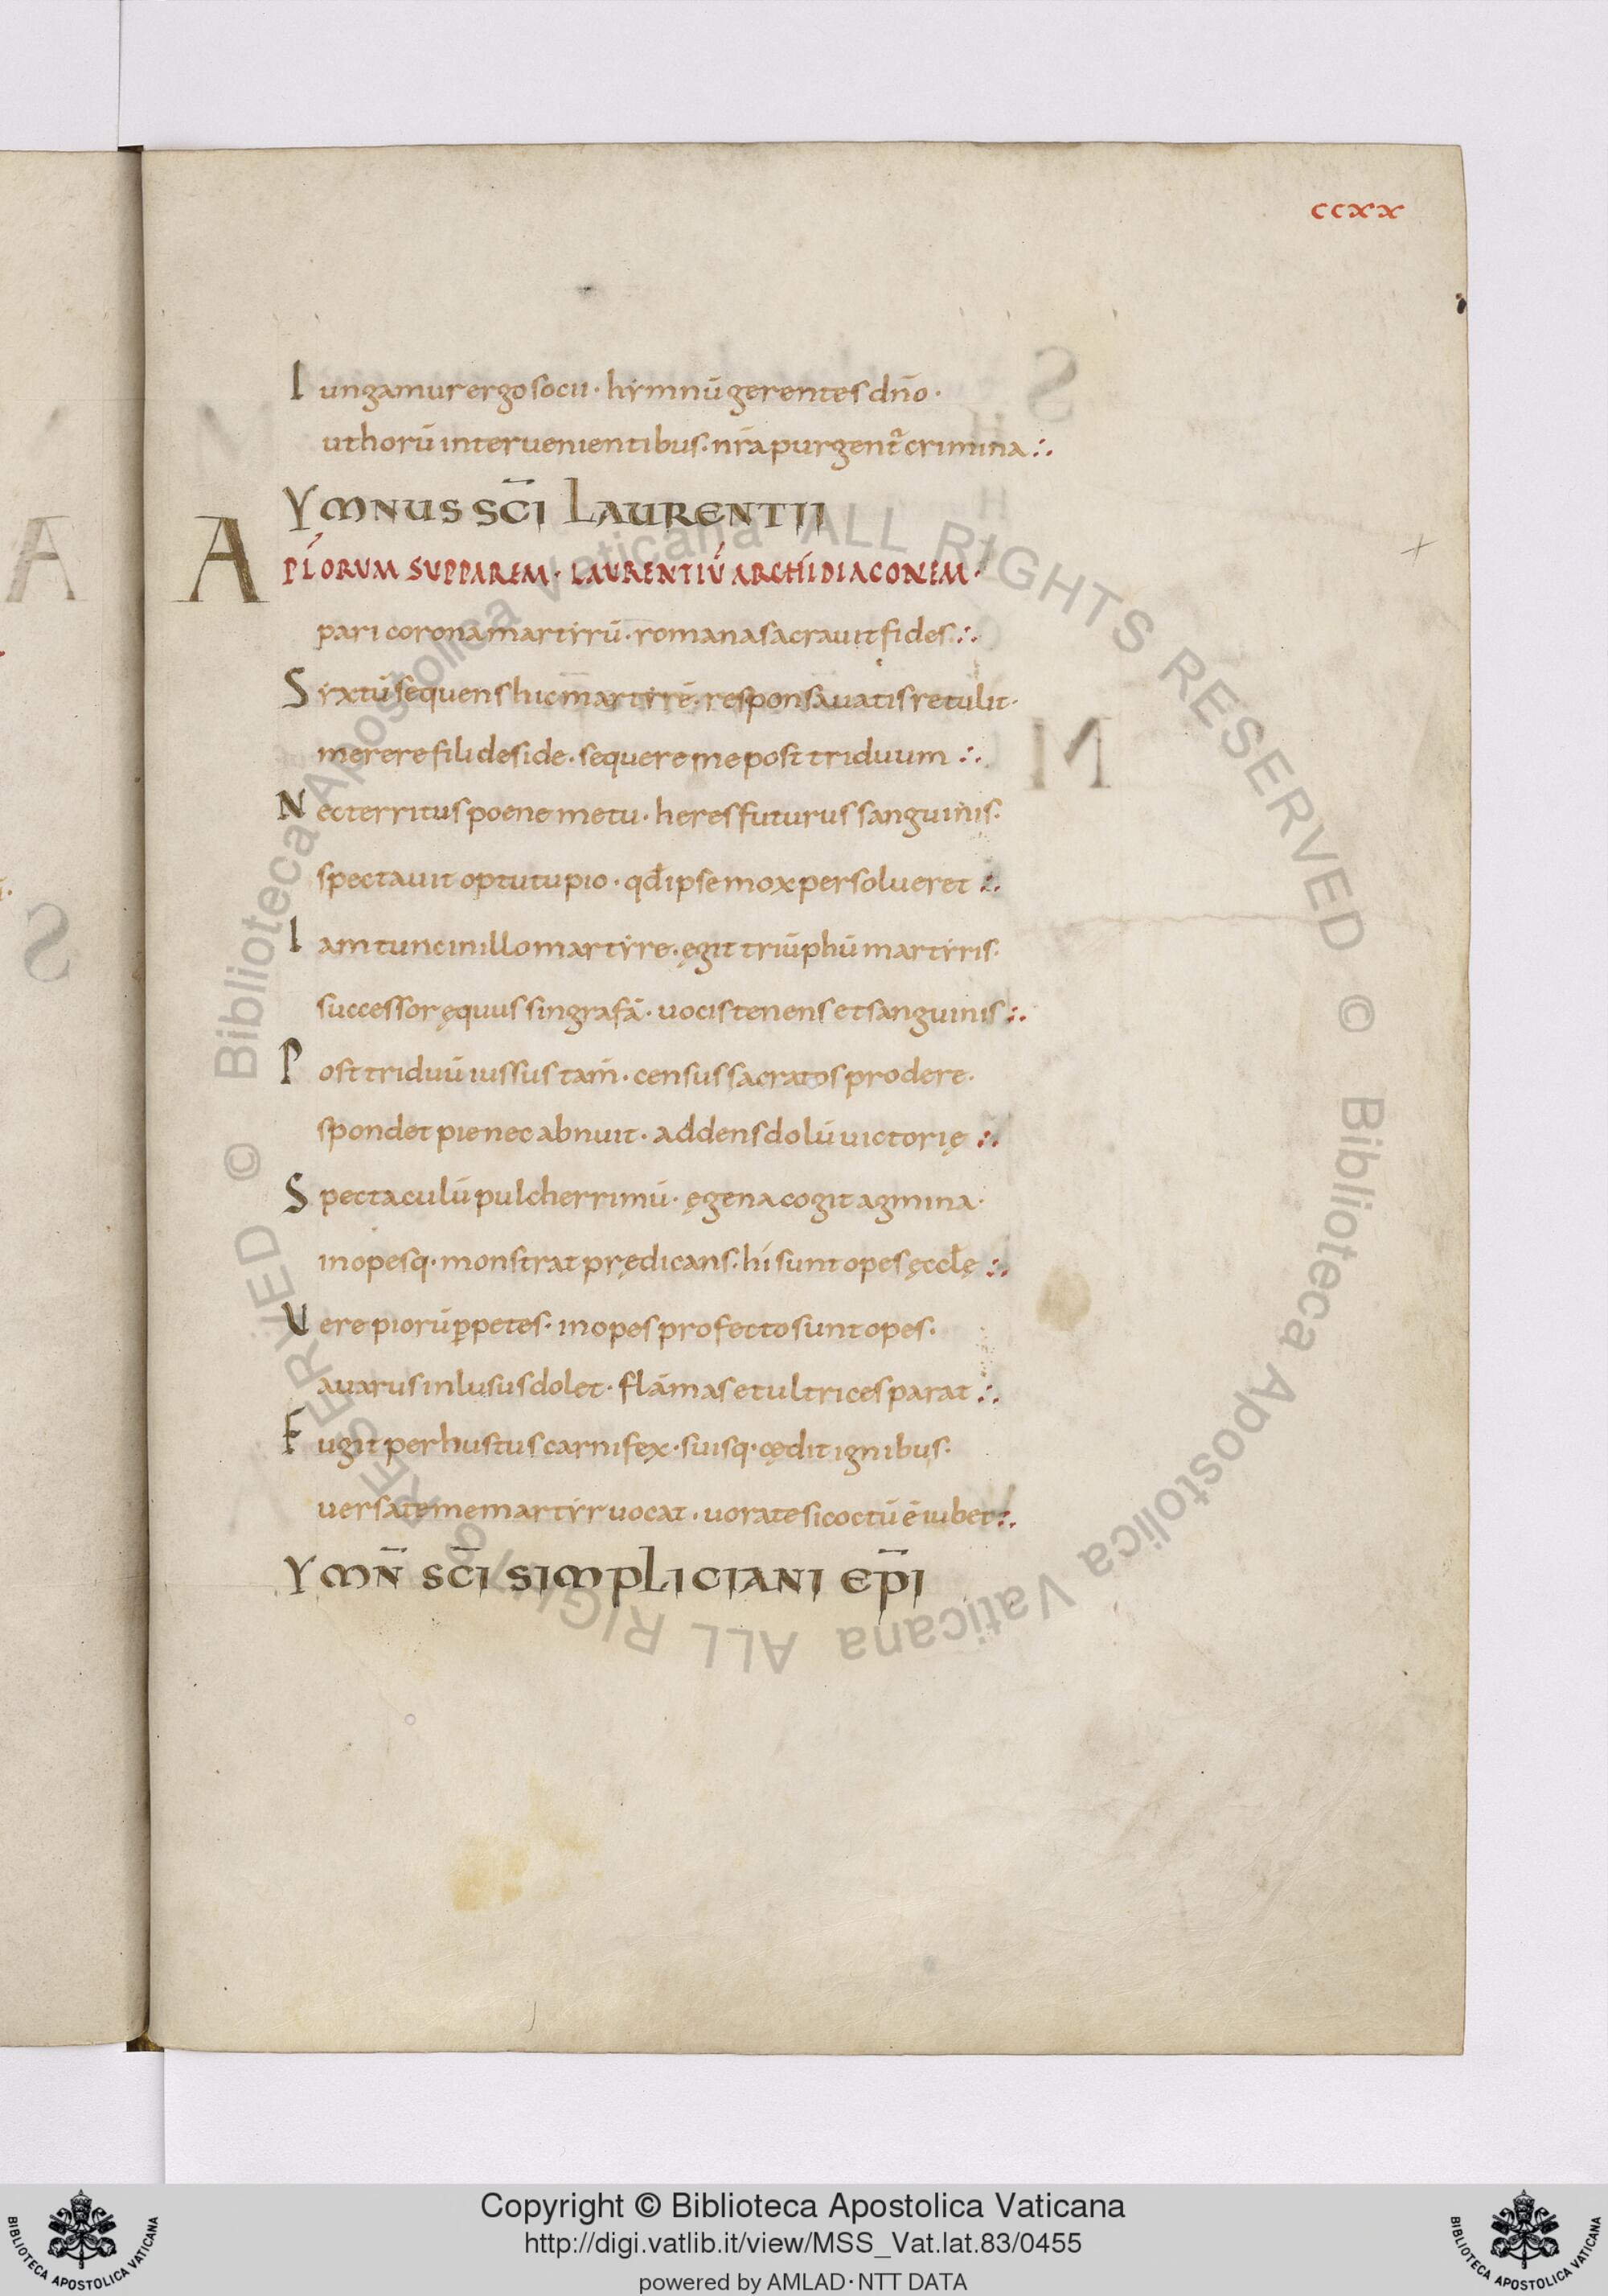 ccxx
Iungamur ergo socii · hymnū gerentes dn̄o ·
ut horū intervenientibus · nr̄a purgent᷑ crimina ∴
YMNUS SC̄I LAURENTII
APL̄ORUM SUPPAREM · LAURENTIŪ ARCHIDIACONEM ·
pari corona martẏrū · romana sacravit fides ∴
Sẏxtū sequens hic martẏrē · responsa vatis retulit ·
merere fili deside · sequere me post triduum ∴
Nec territus poene metu · heres futurus sanguinis ·
spectavit optutu pio · qđ ipse mox persolveret ∴
Iam tunc in illo martẏre · ęgit triūphū martẏris ·
successor ęquus singrafā · vocis tenens et sanguinis ∴
Post triduū iussus tam̄ · census sacratos prodere ·
spondet pie nec abnuit · addens dolū victorię ∴
Spectaculū pulcherrimū · ęgena cogit agmina ·
inopesq · monstrat prędicans · hi sunt opes ęccłę ∴
Vere piorū ꝑpetes · inopes profecto sunt opes ·
avarus inlusus dolet · flāmas et ultrices parat ∴
Fugit perhustus carnifęx · suisq · cędit ignibus ·
versate me martẏr vocat · vorate si coctū ē iubet ∴
YMN̄ SC̄I SIMPLICIANI EP̄I
© Biblioteca Apostolica Vaticana ALL RIGHTS RESERVED © Biblioteca Apostolica Vaticana ALL RIGHTS RESERVED
Copyright © Biblioteca Apostolica Vaticana
http://digi.vatlib.it/view/MSS_Vat.lat.83/0455
powered by AMLAD·NTT DATA
BIBLIOTECA APOSTOLICA VATICANA
BIBLIOTECA APOSTOLICA VATICANA